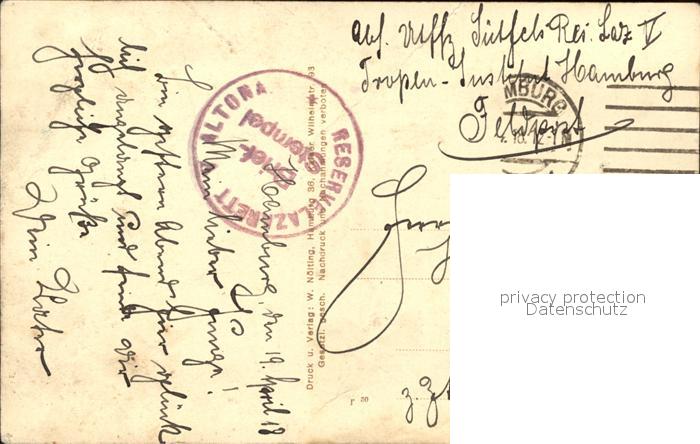 Abs. Utffz. Sütfels Res. Laz V
Tropen-Institut Hamburg
Feldpost
MBURG
RESERVELAZARETT ALTONA
Brief-
stempel
Hamburg, den 19. April 18
Mein lieber Junge!
Bin gestern Abend hier
glück
lich angelangt und
Dir
herzliche Grüße
Dein Vater
Herr
z. Zt
Druck u. Verlag: W. Nölting, Hamburg 36, Wilhelmstr. 93
Gesetzl. gesch. Nachdruck und Nachahmungen verboten
privacy protection
Datenschutz